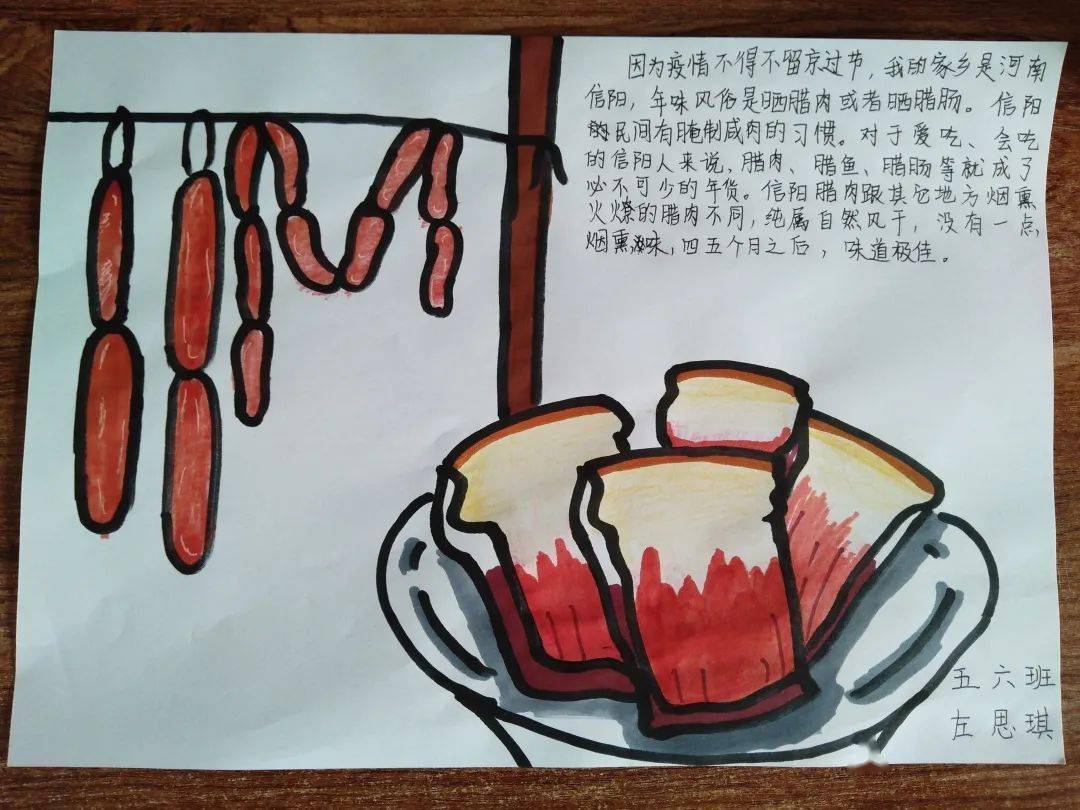 因为疫情不得不留京过节，我的家乡是河南
信阳，年味风俗是晒腊肉或者晒腊肠。信阳
的民间有腌制咸肉的习惯。对于爱吃、会吃
的信阳人来说、腊肉、腊鱼、腊肠等就成了
必不可少的年货。信阳腊肉跟其它地方烟熏
火燎的腊肉不同，纯属自然风干，没有一点
烟熏味，四五个月之后，味道极佳。
五六班
左思琪